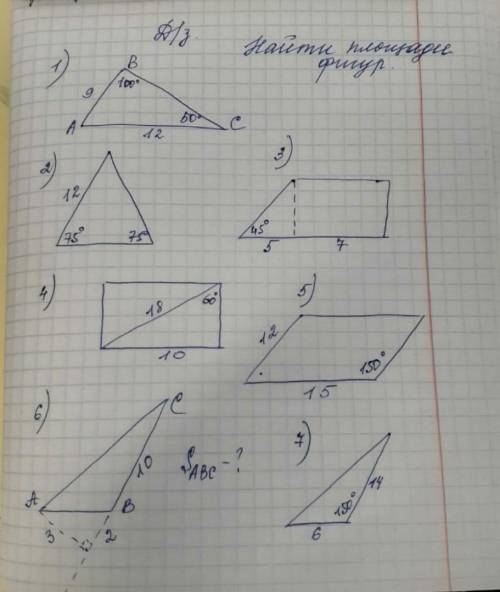 Д/з.
Найти площади
фигур.
1)
B
9
100°
50°
A
12
C
2)
12
75°
75°
3)
45°
5
7
4)
18
60°
10
5)
12
150°
15
6)
C
10
S ABC - ?
A
B
3
2
7)
14
150°
6